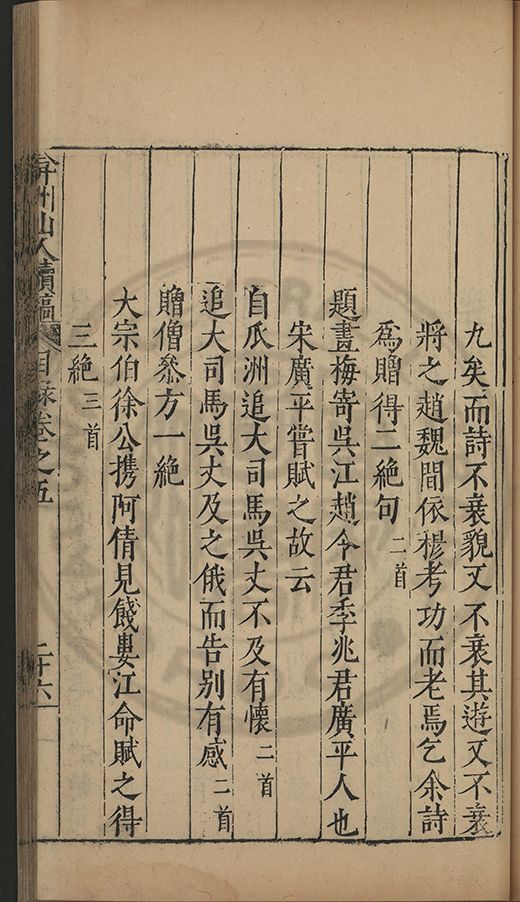 九矣而詩不衰貌又不衰其遊又不衰
將之趙魏間依楊考功而老焉乞余詩
為贈得二絕句二首
題畫梅寄吳江趙令君季兆君廣平人也
宋廣平嘗賦之故云
自瓜洲追大司馬吳丈不及有懷二首
追大司馬吳丈及之俄而告別有感二首
贈僧叅方一絕
大宗伯徐公攜阿倩見餞婁江命賦之得
三絕三首
弇州山人續稿 目錄卷之五 二十六